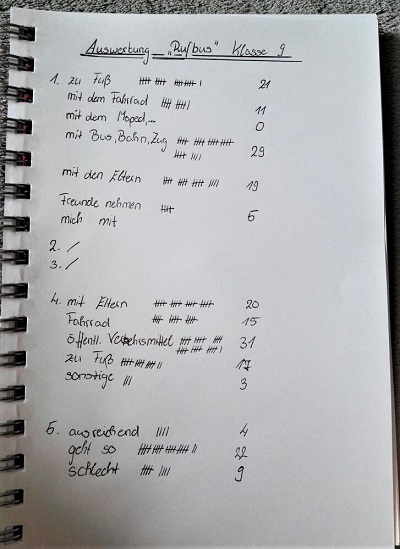 Auswertung „Rufbus" Klasse 9
1. zu Fuß 卌 卌 卌 卌 | 21
mit dem Fahrrad 卌 卌 | 11
mit dem Moped,... 0
mit Bus, Bahn, Zug 卌 卌 卌 卌
卌 |||| 29
mit den Eltern 卌 卌 卌 |||| 19
Freunde nehmen 卌 5
mich mit
2. /
3. /
4. mit Eltern 卌 卌 卌 卌 20
Fahrrad 卌 卌 卌 15
öffentl. Verkehrsmittel 卌 卌 卌 31
卌 卌 卌 |
zu Fuß 卌 卌 卌 || 17
sonstige ||| 3
5. ausreichend |||| 4
geht so 卌 卌 卌 卌 || 22
schlecht 卌 |||| 9